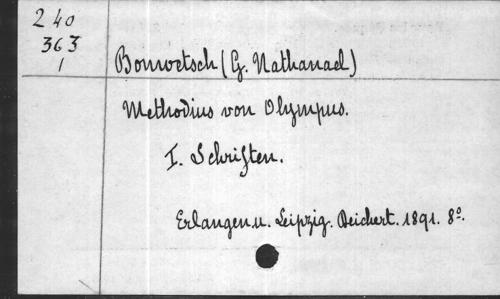 240
363
1
Bonwetsch (G. Nathanael)
Methodius von Olympus.
I. Schriften.
Erlangen u. Leipzig. Deichert. 1891. 8°.